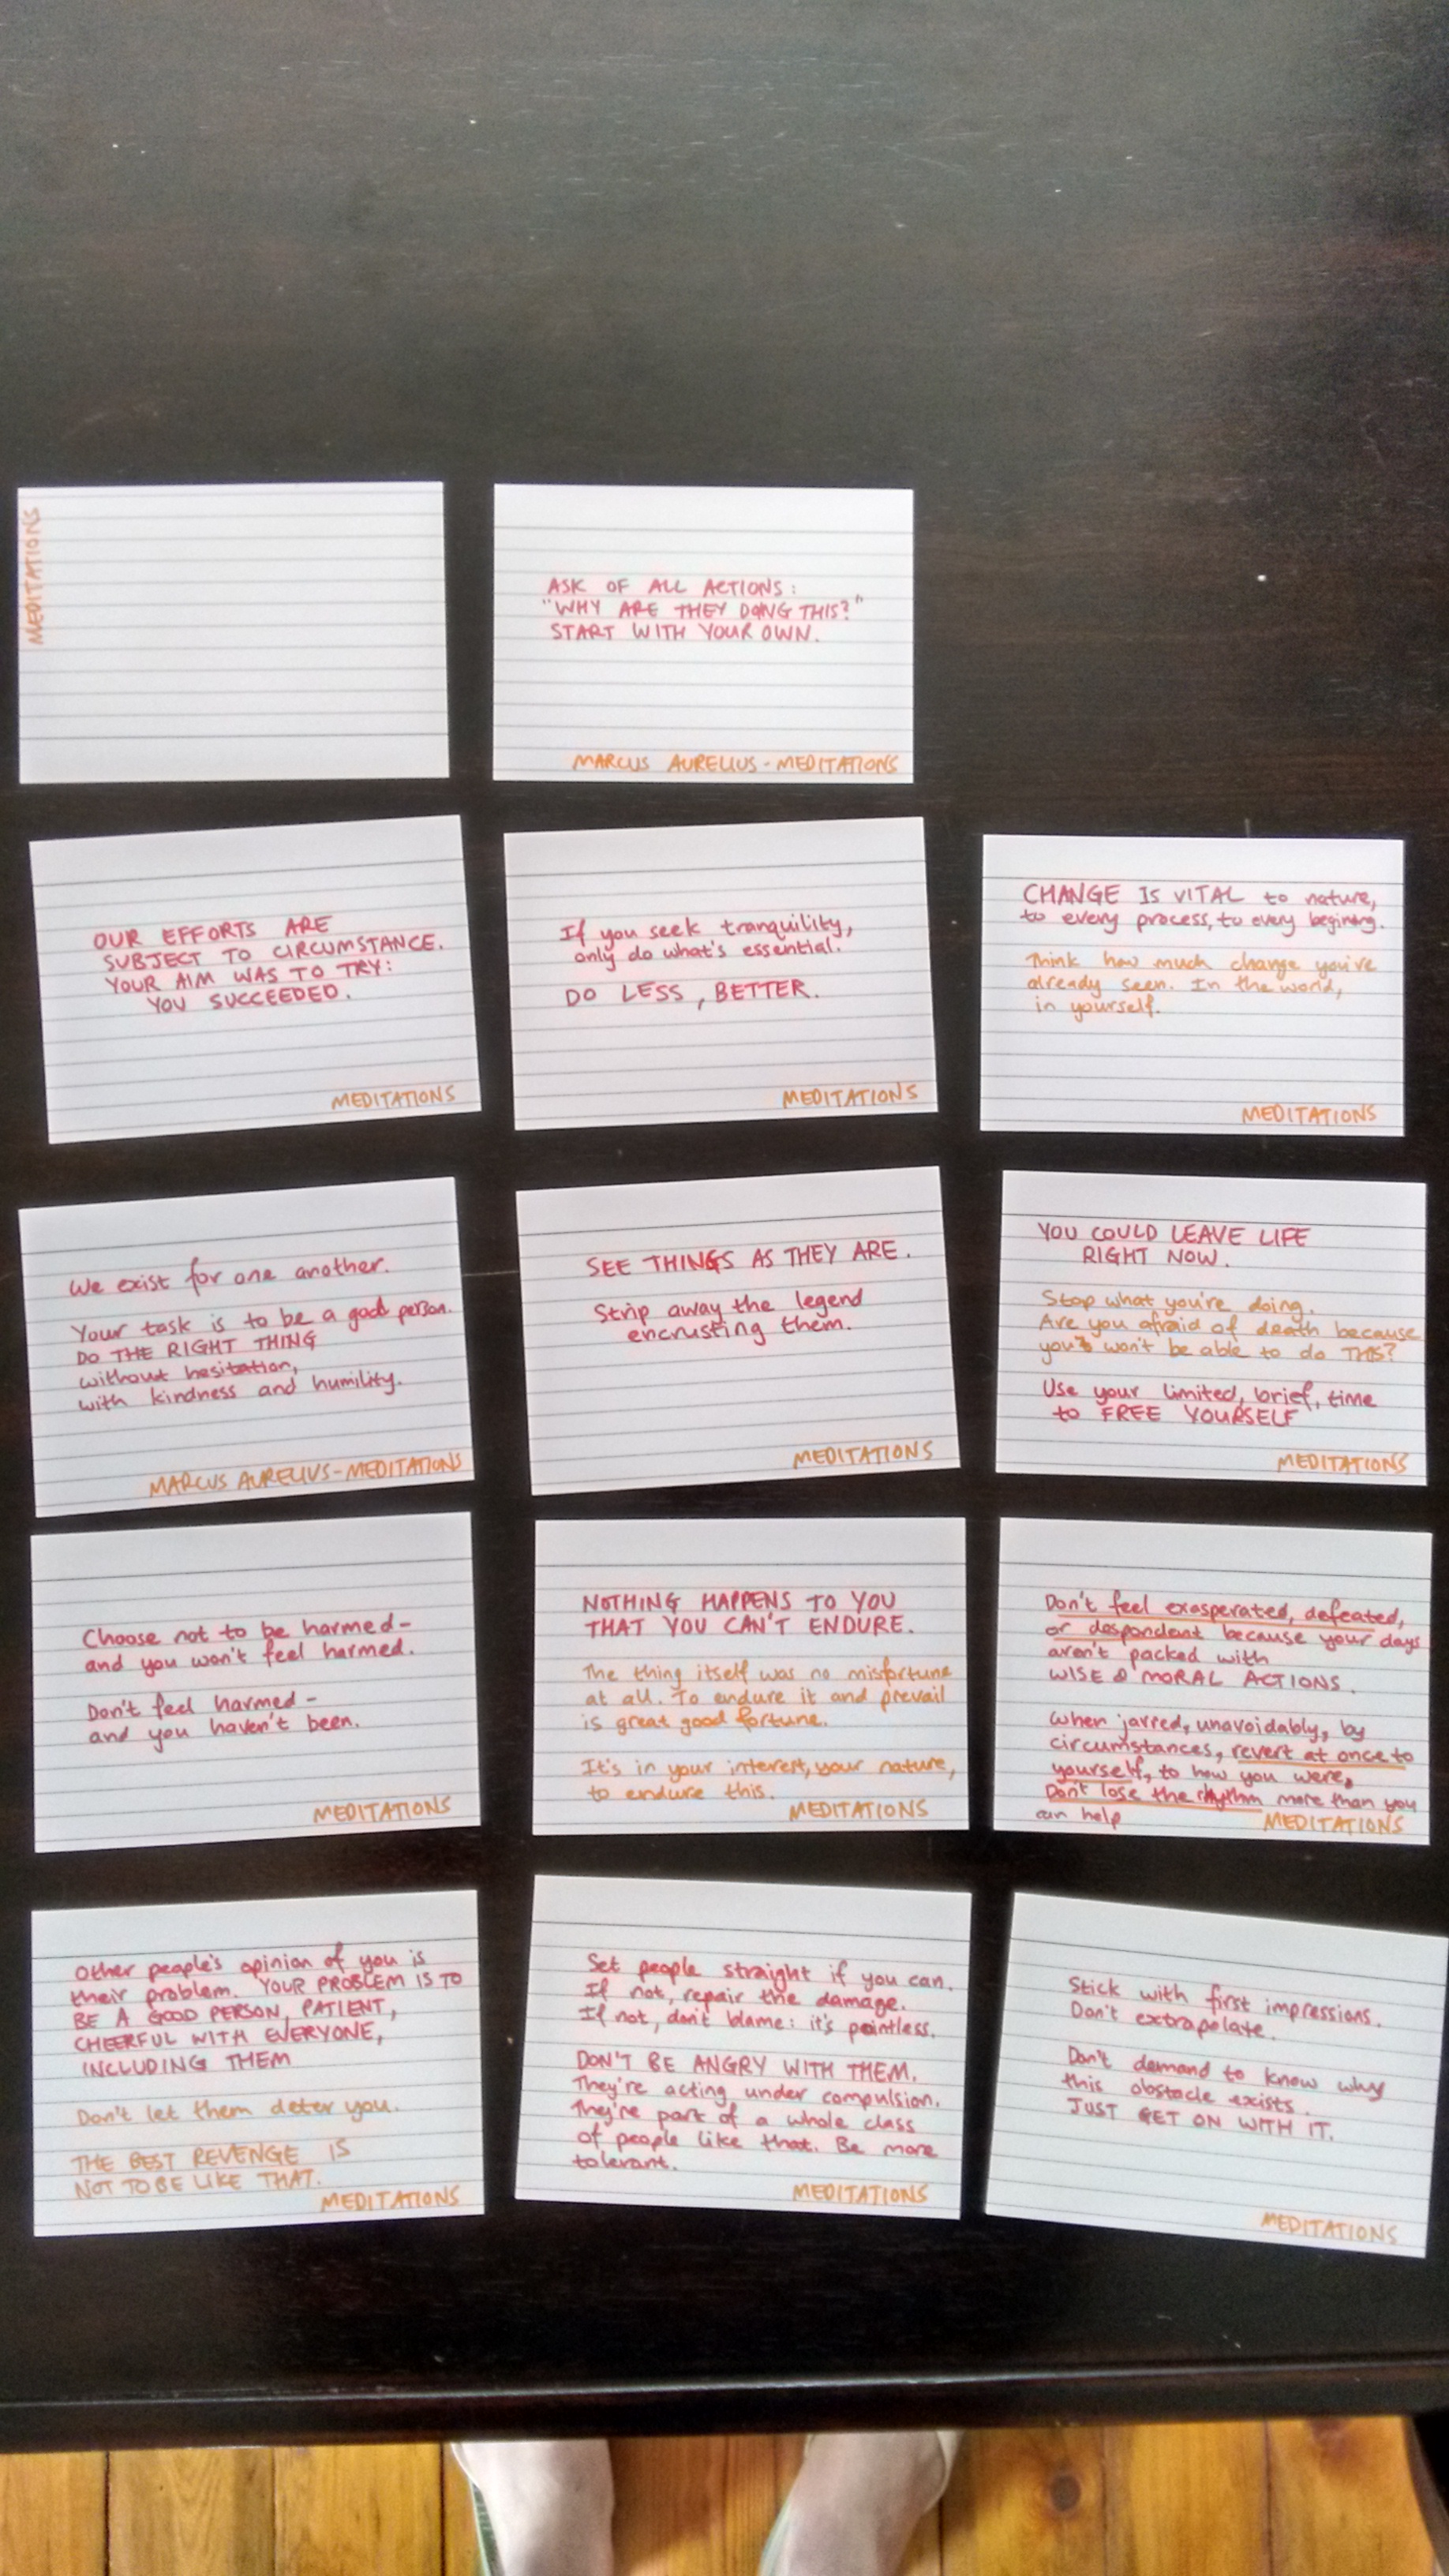 MEDITATIONS
ASK OF ALL ACTIONS:
"WHY ARE THEY DOING THIS?"
START WITH YOUR OWN.
MARCUS AURELIUS - MEDITATIONS
OUR EFFORTS ARE
SUBJECT TO CIRCUMSTANCE.
YOUR AIM WAS TO TRY:
YOU SUCCEEDED.
MEDITATIONS
If you seek tranquility,
only do what's essential.
DO LESS, BETTER.
MEDITATIONS
CHANGE IS VITAL to nature,
to every process, to every begining.
Think how much change you've
already seen. In the world,
in yourself.
MEDITATIONS
We exist for one another.
Your task is to be a good person.
DO THE RIGHT THING
without hesitation,
with kindness and humility.
MARCUS AURELIUS - MEDITATIONS
SEE THINGS AS THEY ARE.
Strip away the legend
encrusting them.
MEDITATIONS
YOU COULD LEAVE LIFE
RIGHT NOW.
Stop what you're doing.
Are you afraid of death because
you won't be able to do THIS?
Use your limited, brief, time
to FREE YOURSELF
MEDITATIONS
Choose not to be harmed -
and you won't feel harmed.
Don't feel harmed -
and you haven't been.
MEDITATIONS
NOTHING HAPPENS TO YOU
THAT YOU CAN'T ENDURE.
The thing itself was no misfortune
at all. To endure it and prevail
is great good fortune.
It's in your interest, your nature,
to endure this.
MEDITATIONS
Don't feel exasperated, defeated,
or despondent because your days
aren't packed with
WISE & MORAL ACTIONS.
When jarred, unavoidably, by
circumstances, revert at once to
yourself, to how you were,
Don't lose the rhythm more than you
can help
MEDITATIONS
Other people's opinion of you is
their problem. YOUR PROBLEM IS TO
BE A GOOD PERSON, PATIENT,
CHEERFUL WITH EVERYONE,
INCLUDING THEM
Don't let them deter you.
THE BEST REVENGE IS
NOT TO BE LIKE THAT.
MEDITATIONS
Set people straight if you can.
If not, repair the damage.
If not, don't blame: it's pointless.
DON'T BE ANGRY WITH THEM.
They're acting under compulsion.
They're part of a whole class
of people like that. Be more
tolerant.
MEDITATIONS
Stick with first impressions.
Don't extrapolate.
Don't demand to know why
this obstacle exists.
JUST GET ON WITH IT.
MEDITATIONS